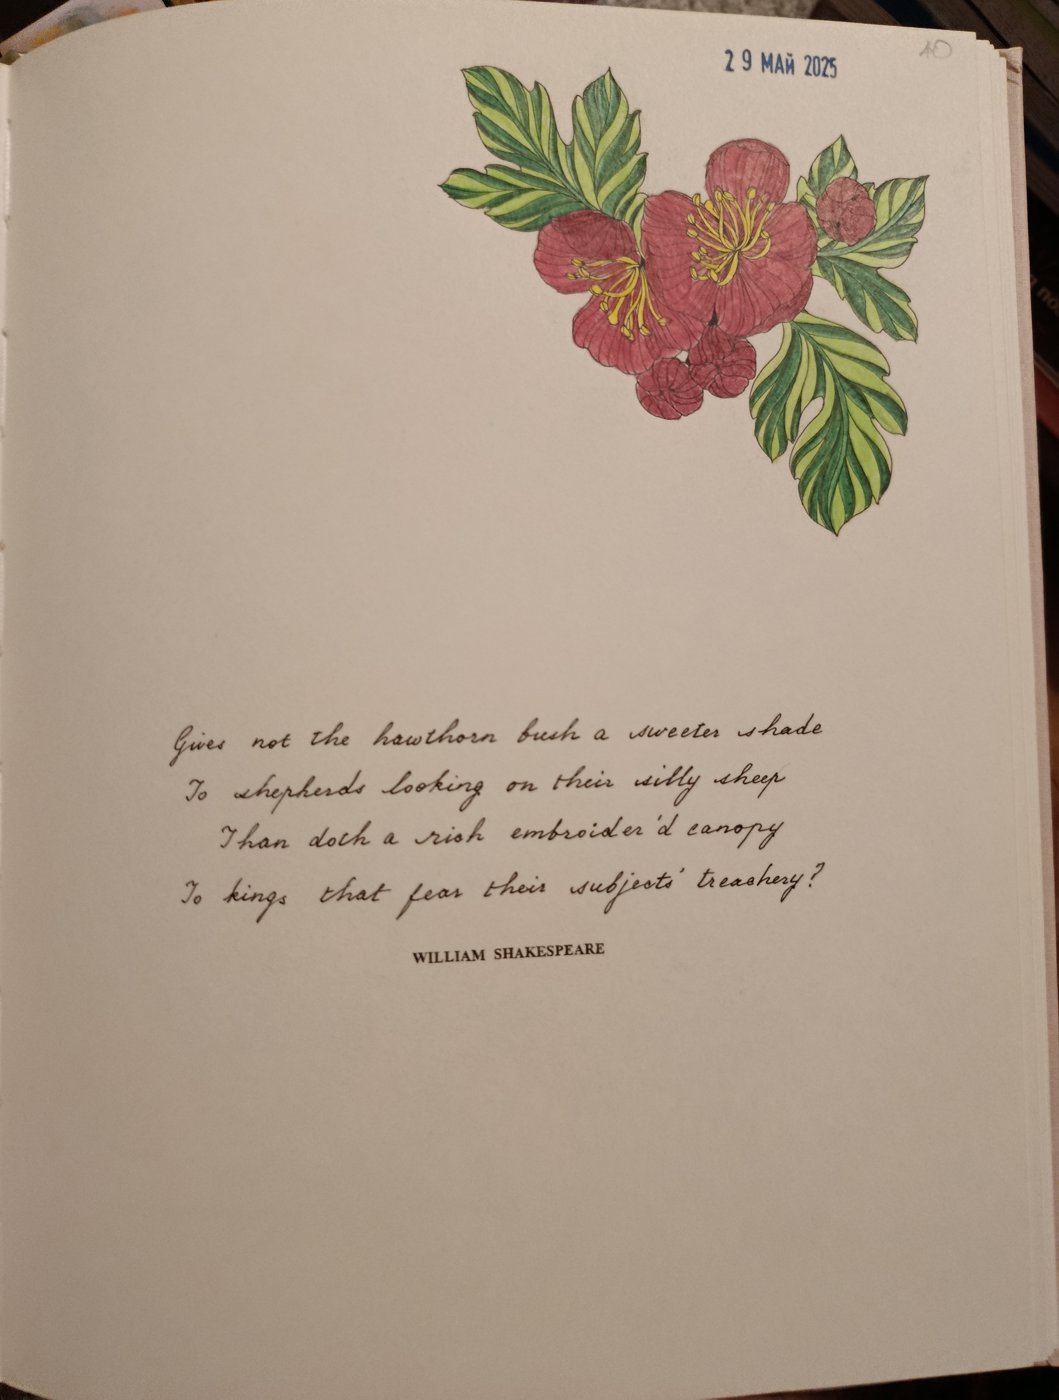 29 МАЙ 2025
10
Gives not the hawthorn bush a sweeter shade
To shepherds looking on their silly sheep
Than doth a rich embroider'd canopy
To kings that fear their subjects' treachery?
WILLIAM SHAKESPEARE